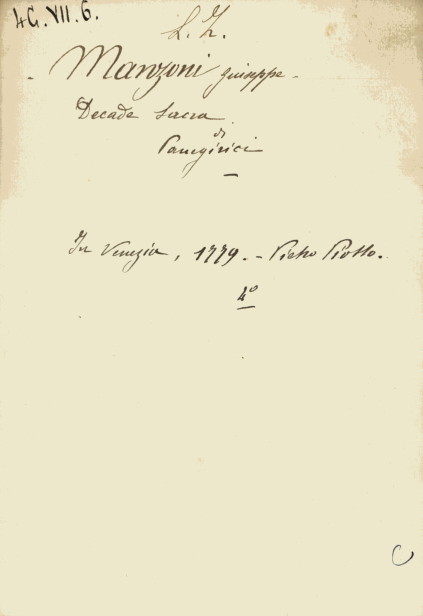 4G.VII.6.
L. Z.
- Manzoni Giuseppe -
Decade Sacra
di
Panegirici
In Venezia, 1779. - Pietro Piotto.
4º
C